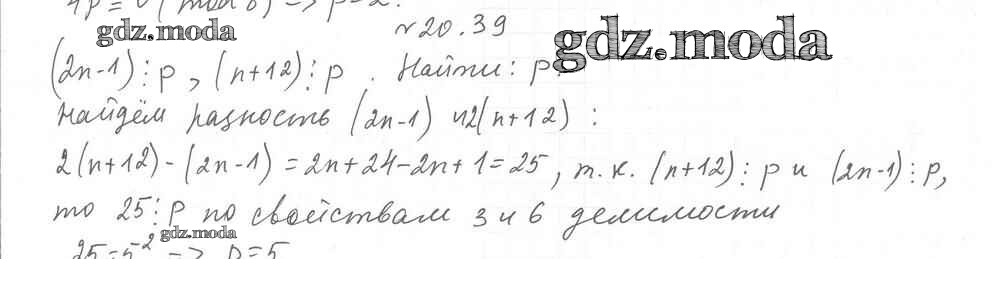 4p = 0 (mod 8) => p=2.
gdz.moda
№20.39
gdz.moda
(2n-1)⋮p, (n+12)⋮p. Найти: p.
Найдём разность (2n-1) и 2(n+12):
2(n+12)-(2n-1)=2n+24-2n+1=25, т.к. (n+12)⋮p и (2n-1)⋮p,
то 25⋮p по свойствам 3 и 6 делимости
gdz.moda
25=5² => p=5